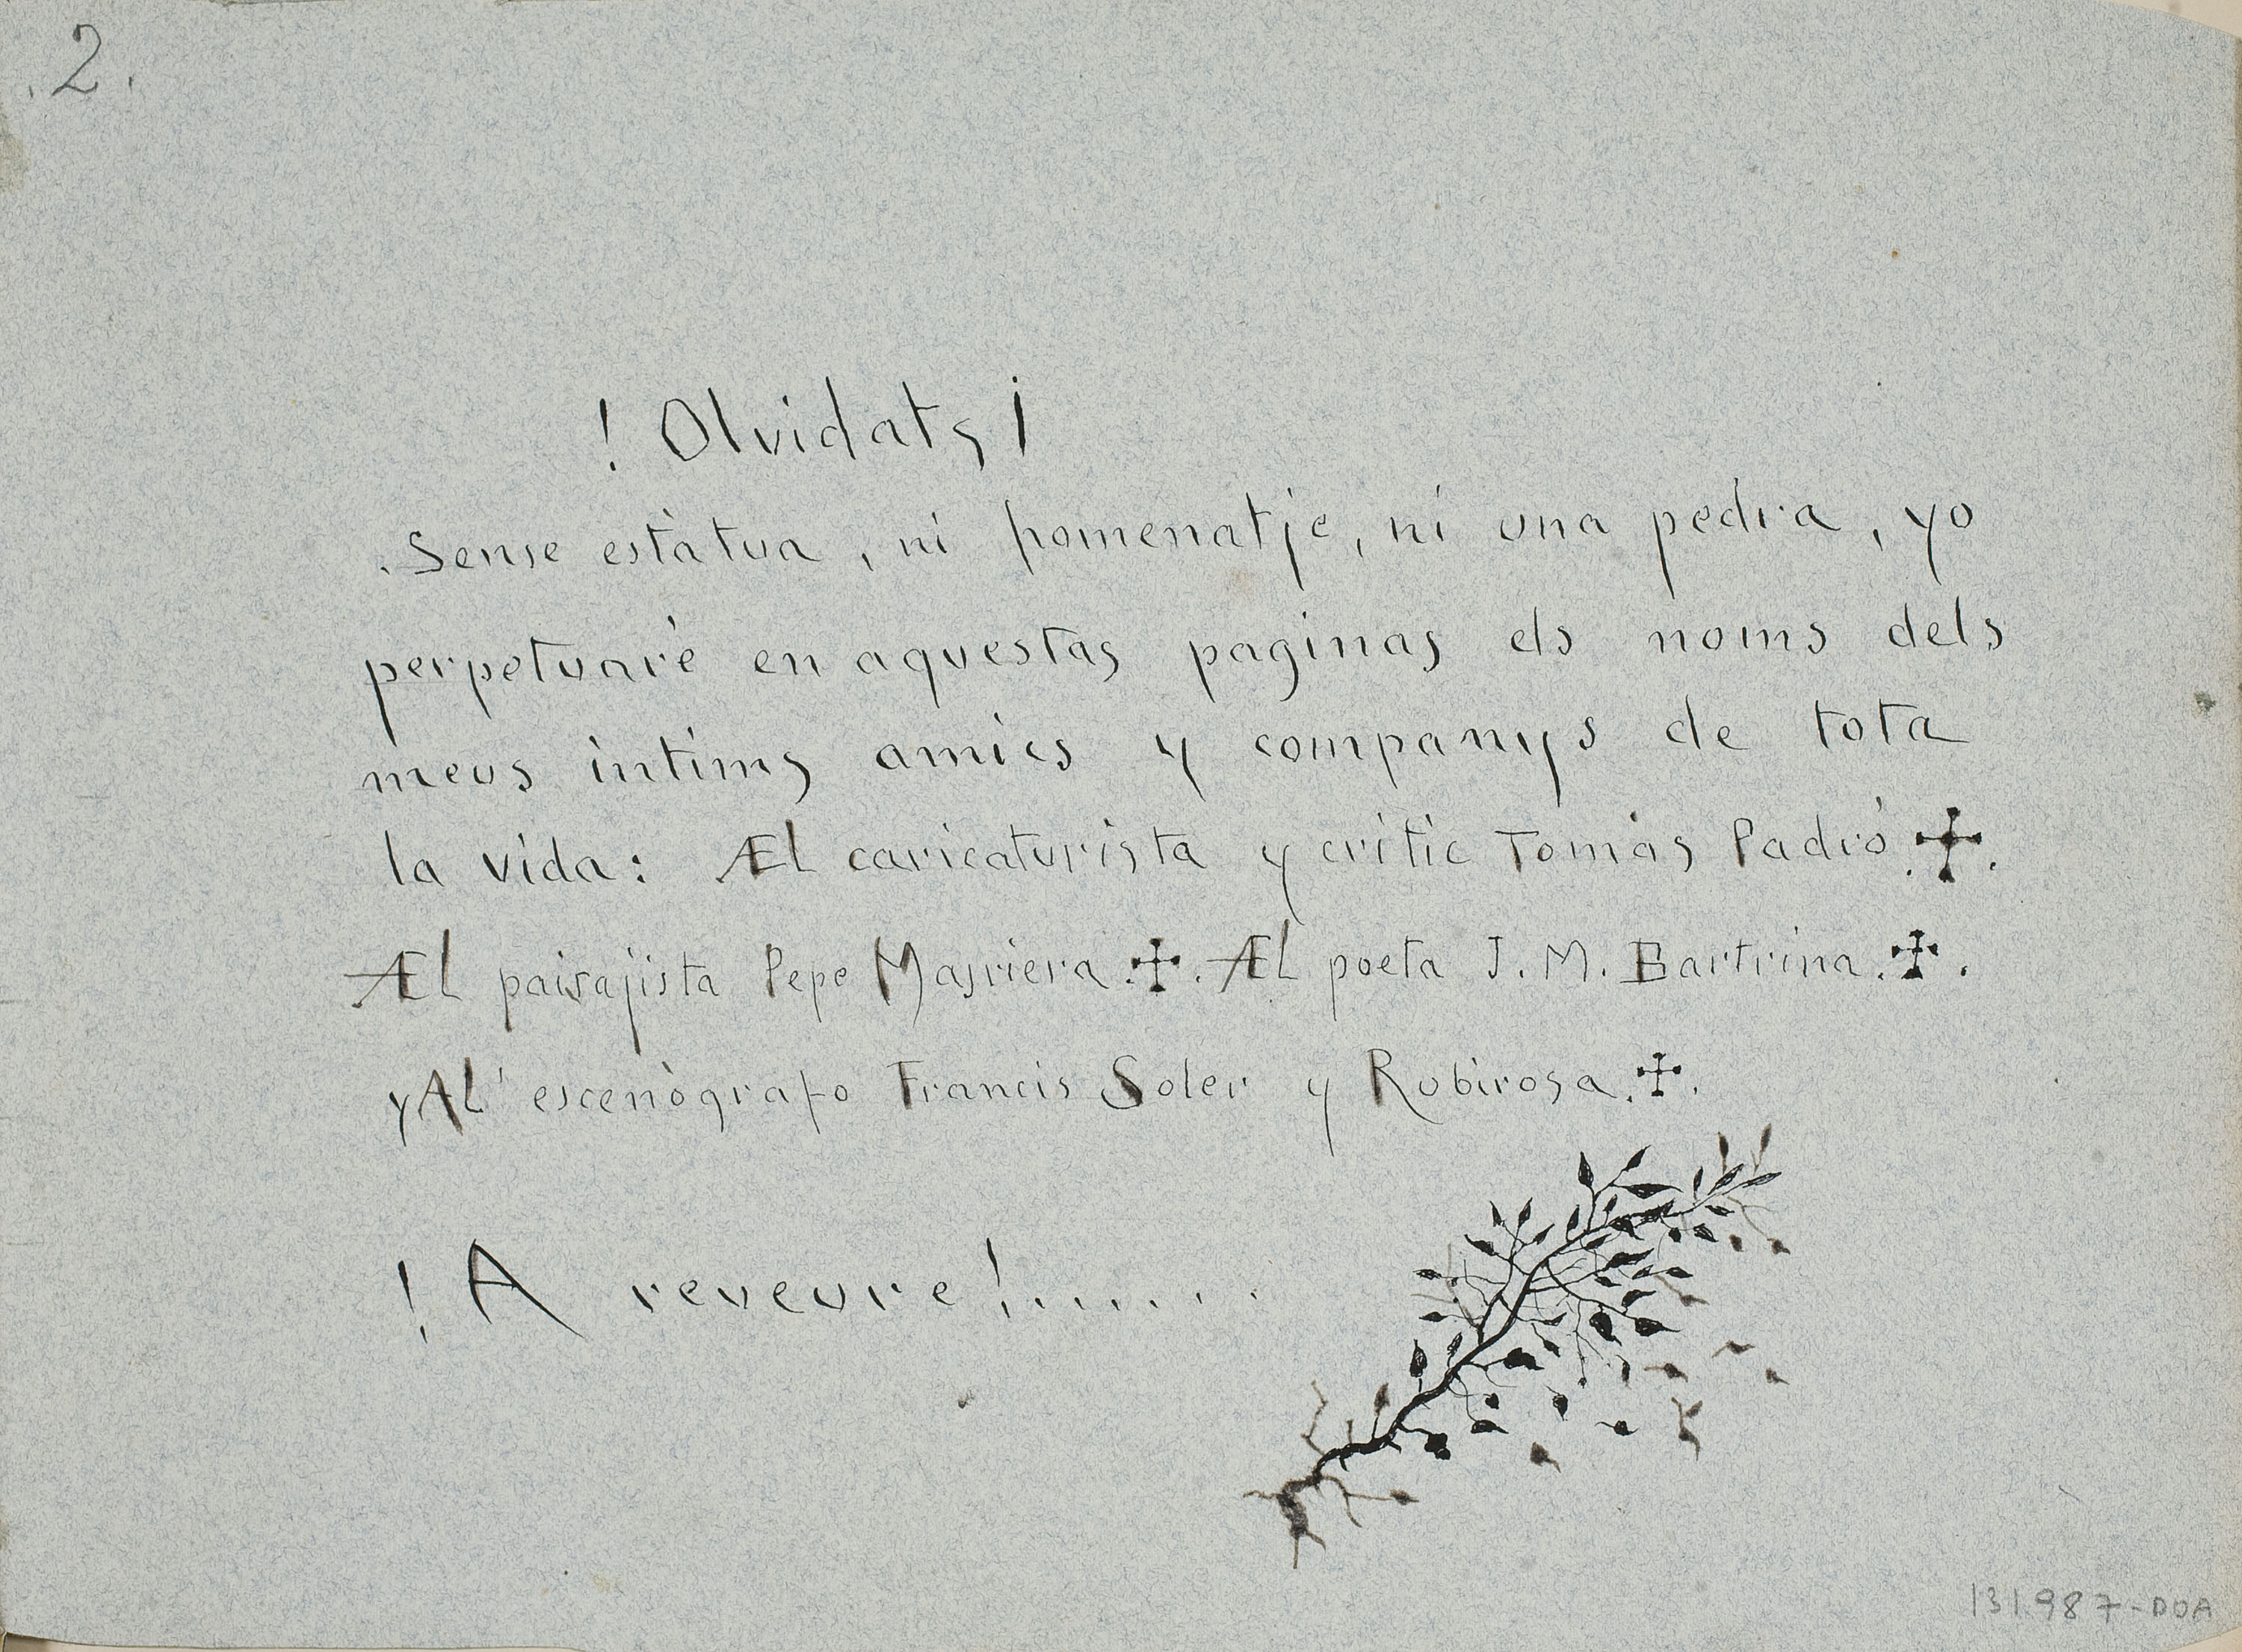 .2.
! Olvidats ¡
. Sense estàtua, ni homenatje, ni una pedra, yo
perpetuaré en aquestas paginas els noms dels
meus intims amics y companys de tota
la vida: Æl caricaturista y critic Tomás Padró ✠.
Æl paisajista Pepe Masriera.✠. Æl poeta J. M. Bartrina.✠.
y Al' escenògrafo Francis Soler y Rubirosa.✠.
! A reveure!.......
131987-DOA